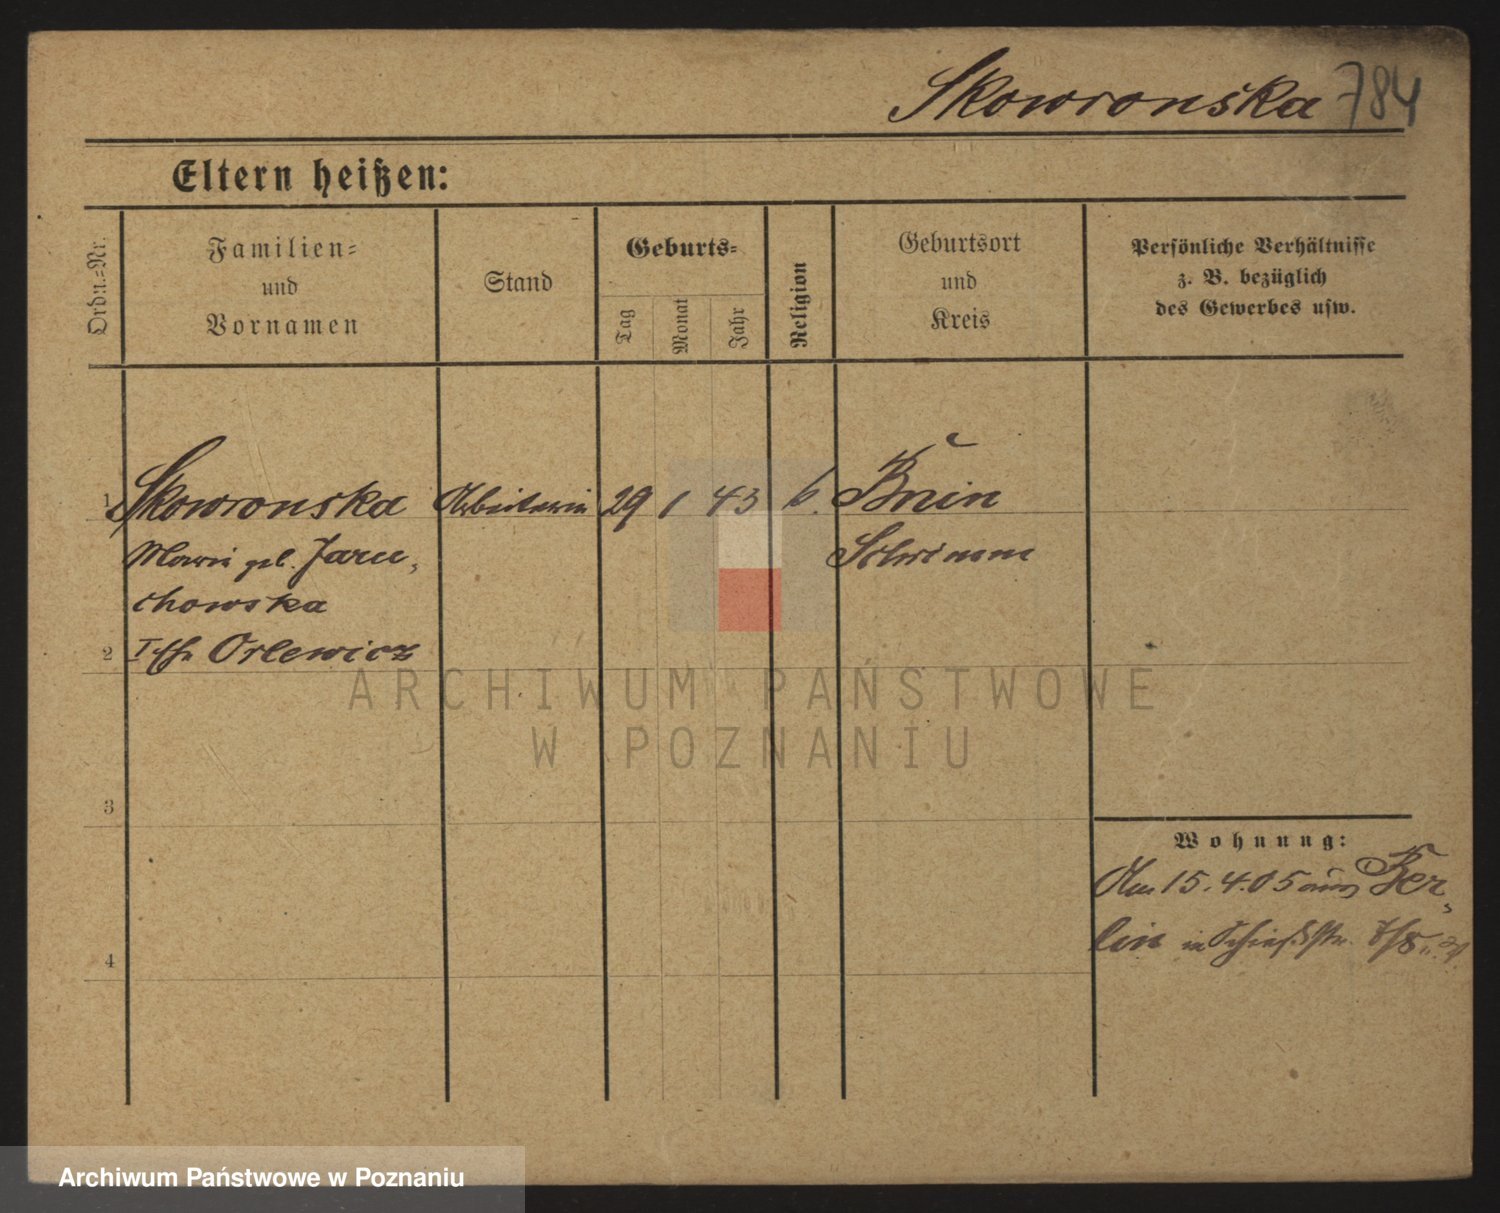 Skowronska 784
Eltern heißen:
Ordn.-Nr.
Familien-
und
Vornamen
Stand
Geburts-
Tag
Monat
Jahr
Religion
Geburtsort
und
Kreis
Persönliche Verhältnisse
z. B. bezüglich
des Gewerbes usw.
1 Skowronska Arbeiterin 29 1 43 k. Bnin
Marie geb. Jaru- Schrimm
chowska
2 I. Ehe Orlewicz
3
4
Wohnung:
Am 15.4.05 aus Ber-
lin in Schießstr.
ARCHIWUM PAŃSTWOWE
W POZNANIU
Archiwum Państwowe w Poznaniu